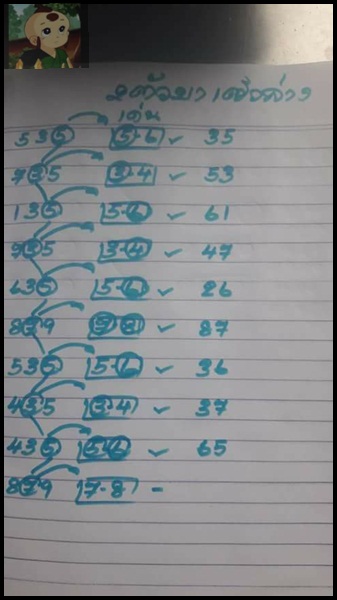 2ตัวบน เน้นล่าง
เด่น
535 5-6 ✓ 35
735 3-4 ✓ 53
135 5-6 ✓ 61
935 3-4 ✓ 47
635 5-6 ✓ 26
879 7-8 ✓ 87
535 5-6 ✓ 36
435 3-4 ✓ 37
435 5-6 ✓ 65
879 7-8 -